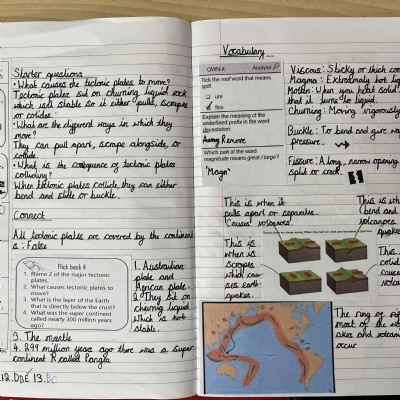 Starter questions
• What causes the tectonic plates to move?
Tectonic plates sit on churning liquid rock
which isn't stable so it either pulls, scrapes
or colides.
• What are the different ways in which they
move?
They can pull apart, scrape alongside, or
colide.
• What is the consequence of tectonic plates
colliding?
When tectonic plates collide, they can either
bend and slide or buckle.
Connect
All tectonic plates are covered by the continent
s: False
Flick back 4
1. Name 2 of the major tectonic
plates.
2. What causes tectonic plates to
move?
3. What is the layer of the Earth
that is directly below the crust?
4. What was the super continent
called nearly 300 million years
ago?
1.
plate and
African plate.
2. They sit on
churning liquid
which is not
stable.
3. The mantle
4. 299 million years ago there was a super
continent called
12. 13.
Vocabulary
Analyse
Tick the root word that means
split
ure
fiss
Explain the meaning of the
underlined prefix in the word
devastation.
Remove
Which part of the word
magnitude means great / large?
'Magn'
Viscous: Sticky or thick con
Magma: Extremely hot li
Molten: When you heat solid
that it turns to liquid.
Churning: Moving vigorously
Buckle: To bend and give wa
pressure.
Fissure: A long, narrow opening
split or crack.
This is when it
pulls apart or separates.
Causes volcanoes.
This is wh
bend and
volcanoes
quakes
This is
when is
scrapes
which cau-
ses earth-
quakes.
This
colid
causes
vol
The ring of
most of the
akes and volcan
occur